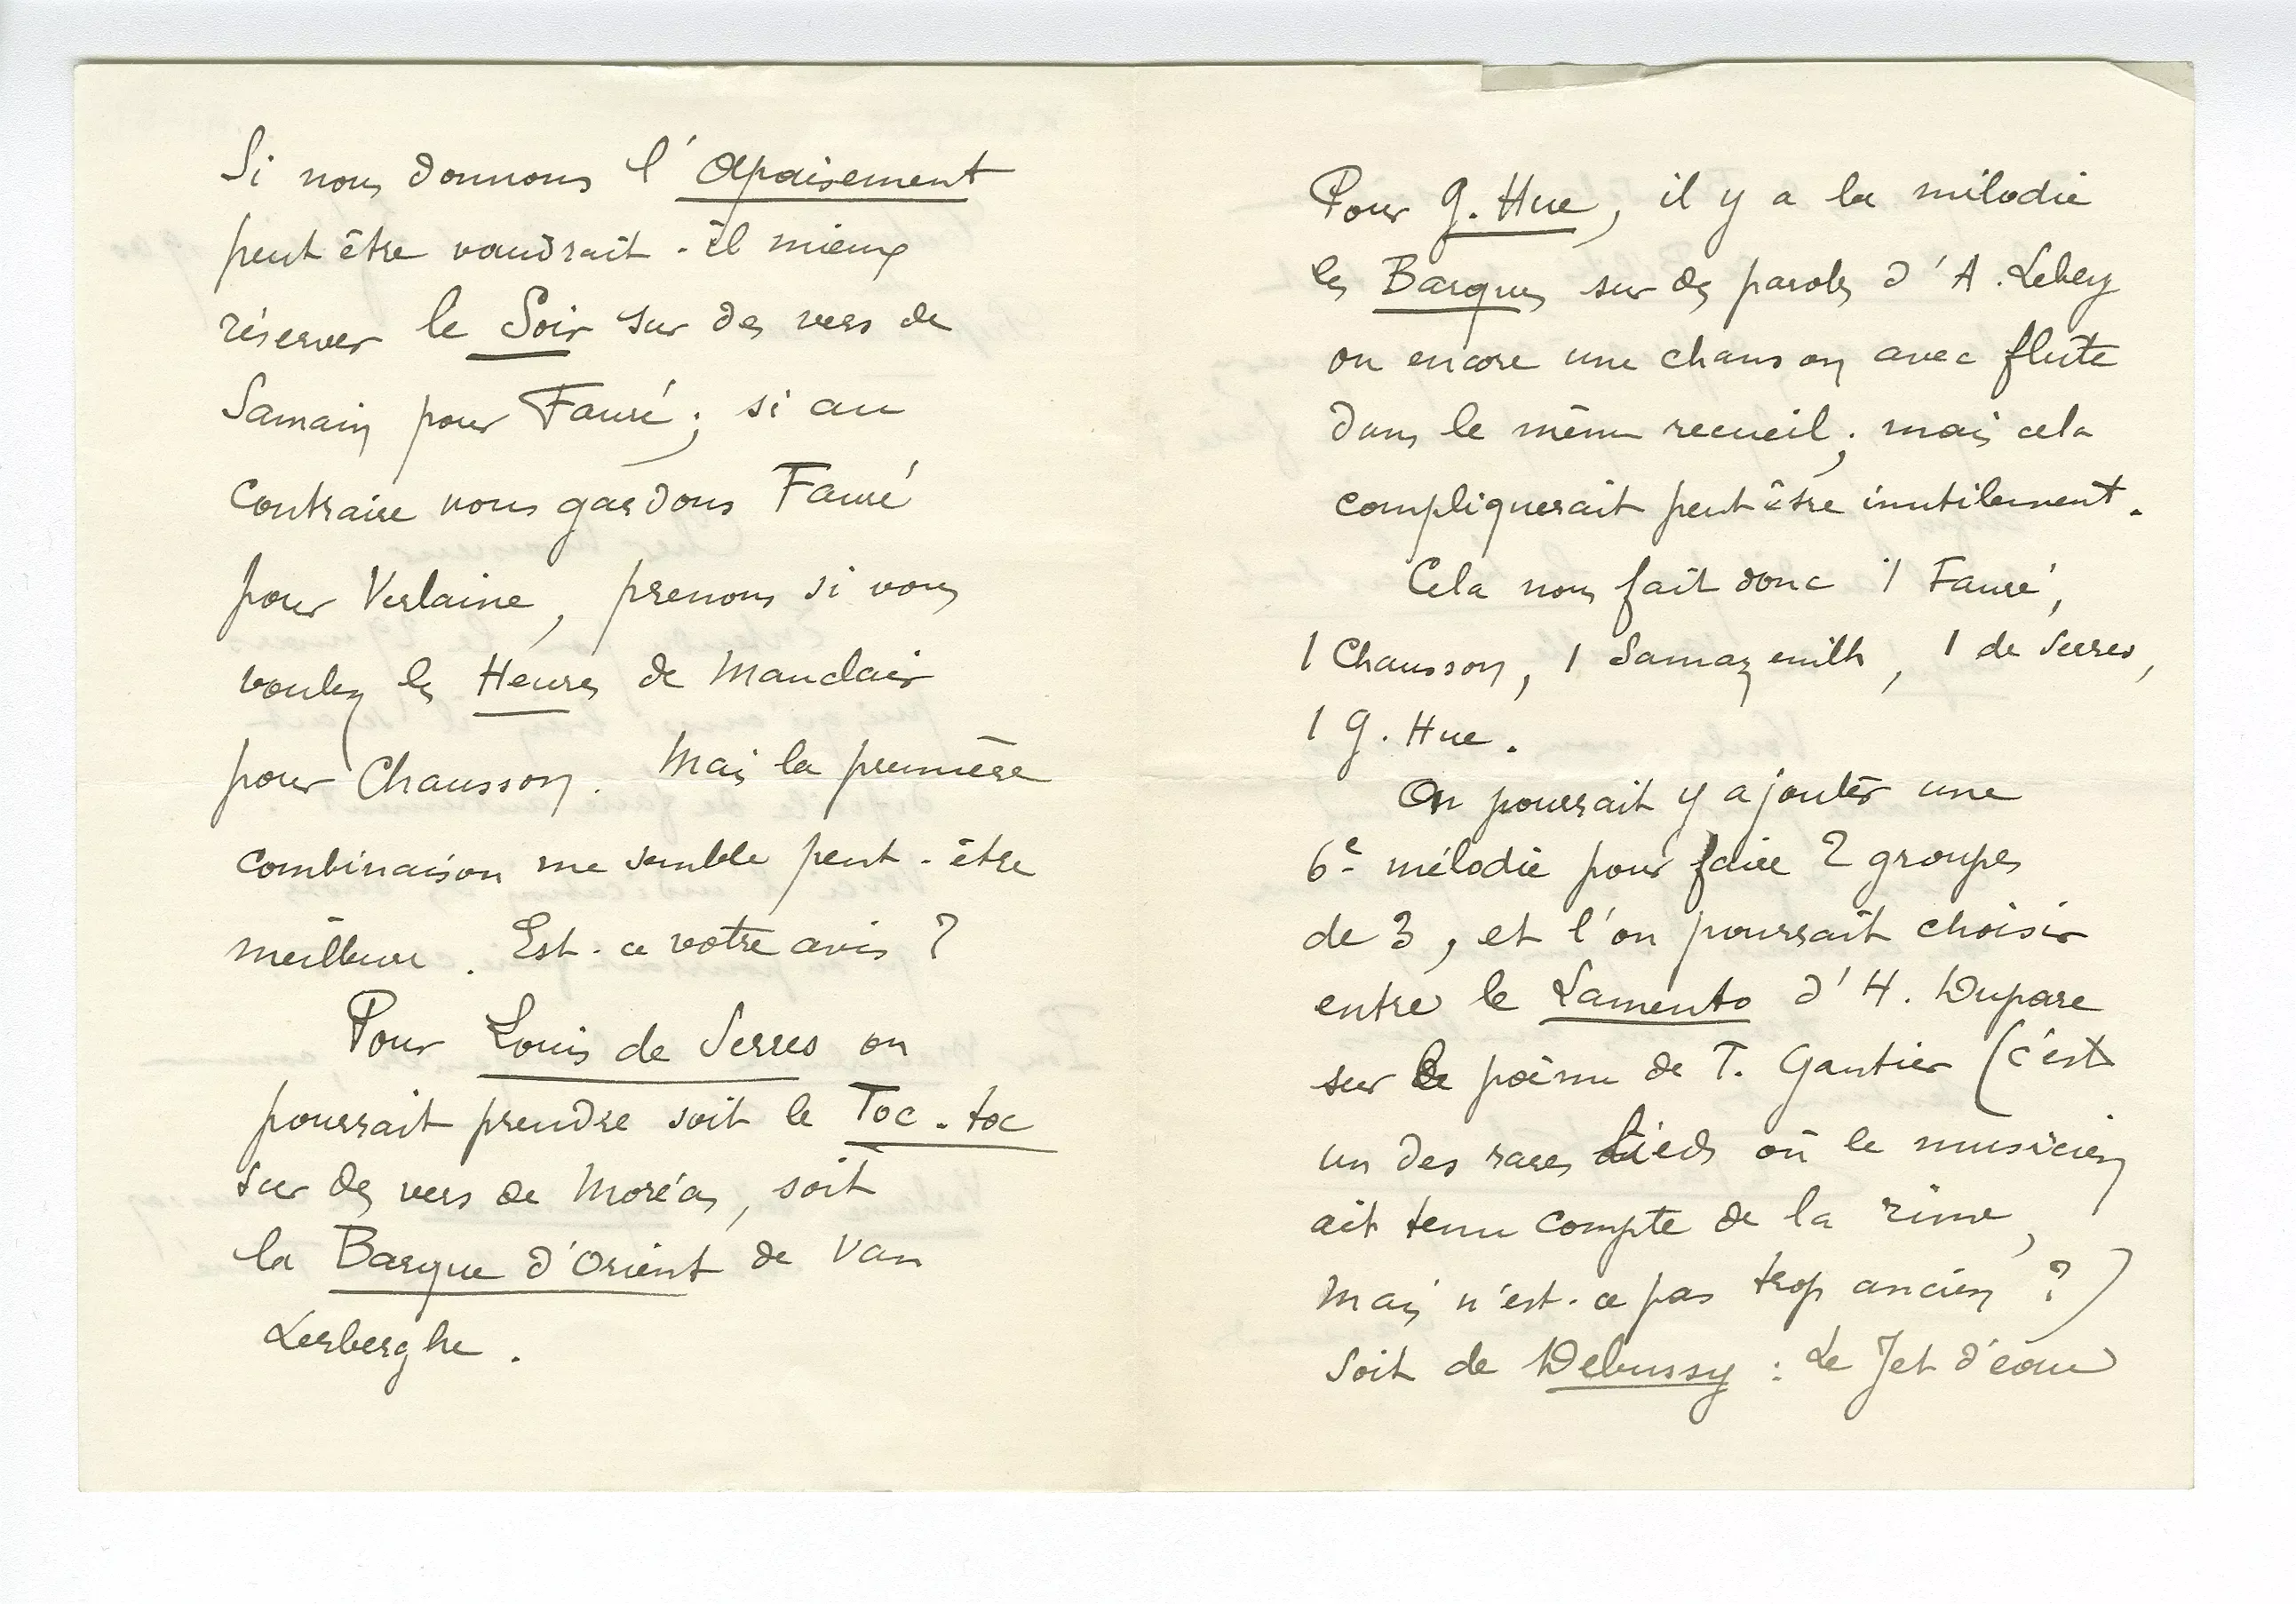 Si nous donnons l'Apaisement
peut être vaudrait-il mieux
réserver le Soir sur des vers de
Samain pour Fauré ; si au
contraire nous gardons Fauré
pour Verlaine, prenons si vous
voulez les Heures de Mauclair
pour Chausson. Mais la première
combinaison me semble peut-être
meilleure. Est-ce votre avis ?
Pour Louis de Serres on
pourrait prendre soit le Toc-toc
sur des vers de Moréas, soit
la Barque d'Orient de Van
Lerberghe.
Pour G. Hue, il y a la mélodie
les Barques sur des paroles d'A. Lebey
ou encore une chanson avec flûte
dans le même recueil ; mais cela
compliquerait peut être inutilement.
Cela nous fait donc 1 Fauré,
1 Chausson, 1 Samazeuilh, 1 de Serres,
1 G. Hue.
On pourrait y ajouter une
6e mélodie pour faire 2 groupes
de 3, et l'on pourrait choisir
entre le Lamento d'H. Duparc
sur le poème de T. Gautier (c'est
un des rares Lieds où le musicien
ait tenu compte de la rime,
Mais n'est-ce pas trop ancien ?)
soit de Debussy : Le Jet d'eau